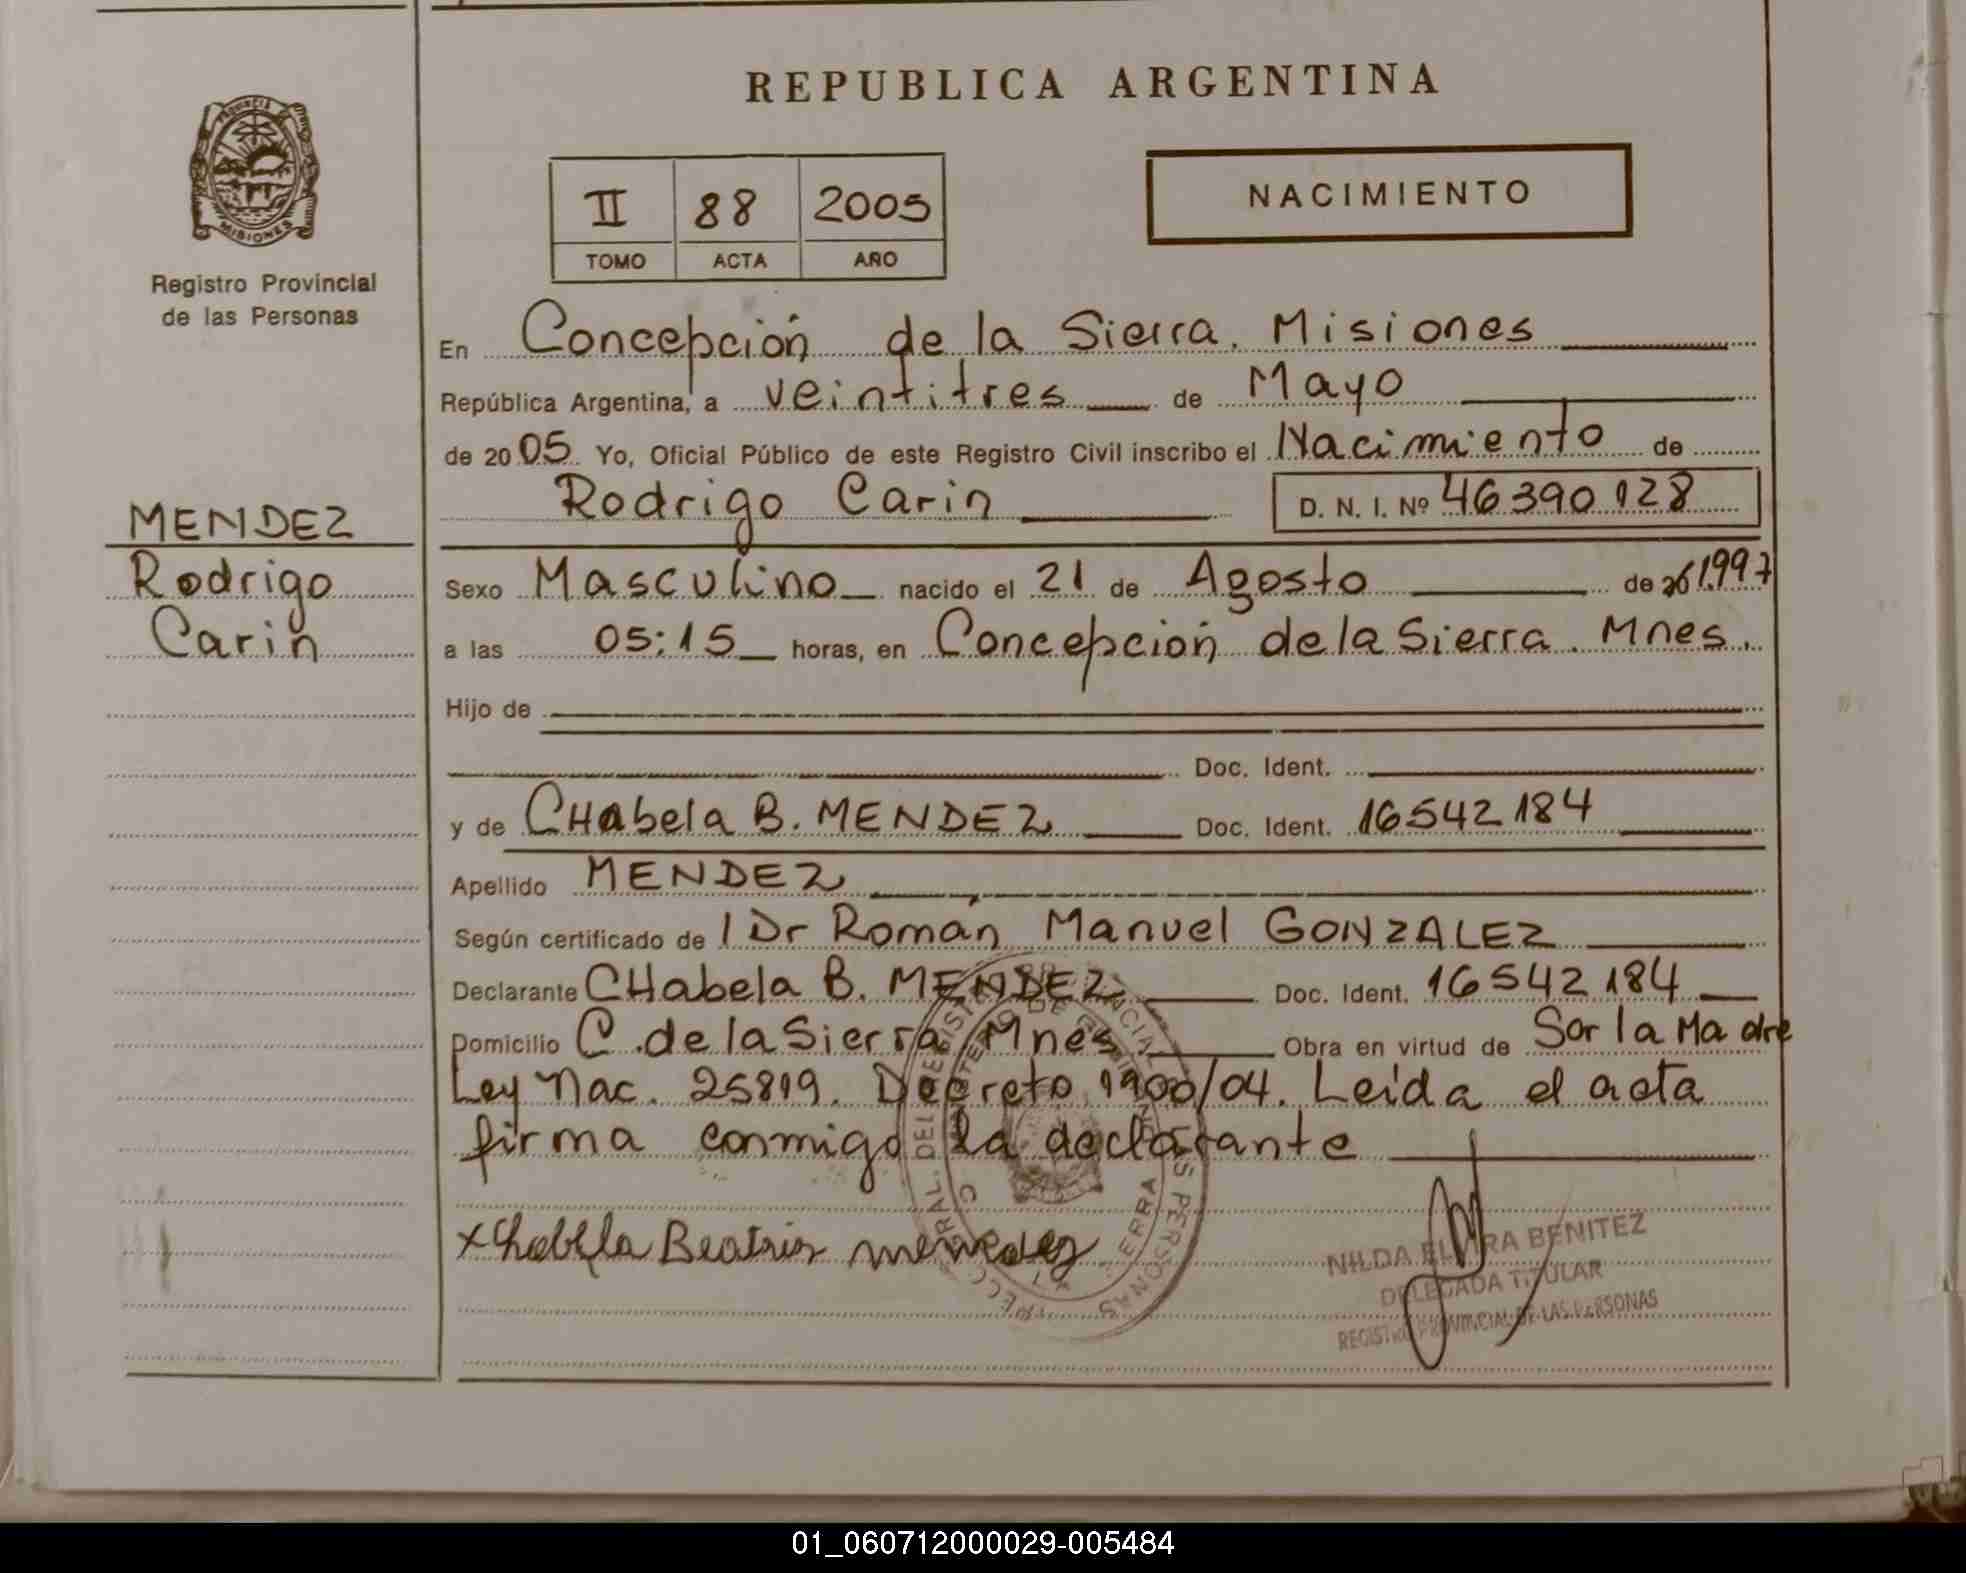 REPUBLICA ARGENTINA
PROVINCIA
MISIONES
Registro Provincial
de las Personas
II 88 2005
TOMO ACTA AÑO
NACIMIENTO
En Concepción de la Sierra. Misiones
República Argentina, a veintitres de Mayo
de 2005 Yo, Oficial Público de este Registro Civil inscribo el Nacimiento de
Rodrigo Carin D. N. I. Nº 46390128
MENDEZ
Rodrigo
Carin
Sexo Masculino nacido el 21 de Agosto de 1997
a las 05:15 horas, en Concepción de la Sierra. Mnes.
Hijo de
Doc. Ident.
y de CHabela B. MENDEZ Doc. Ident. 16542184
Apellido MENDEZ
Según certificado de / Dr Román Manuel GONZALEZ
Declarante CHabela B. MENDEZ Doc. Ident. 16542184
Domicilio C. de la Sierra Mnes. Obra en virtud de Ser la Madre
Ley Nac. 25819. Decreto 1900/04. Leida el acta
firma conmigo la declarante
x Chabela Beatriz mendez
NILDA ELVIRA BENITEZ
DELEGADA TITULAR
REGISTRO PROVINCIAL DE LAS PERSONAS
01_060712000029-005484